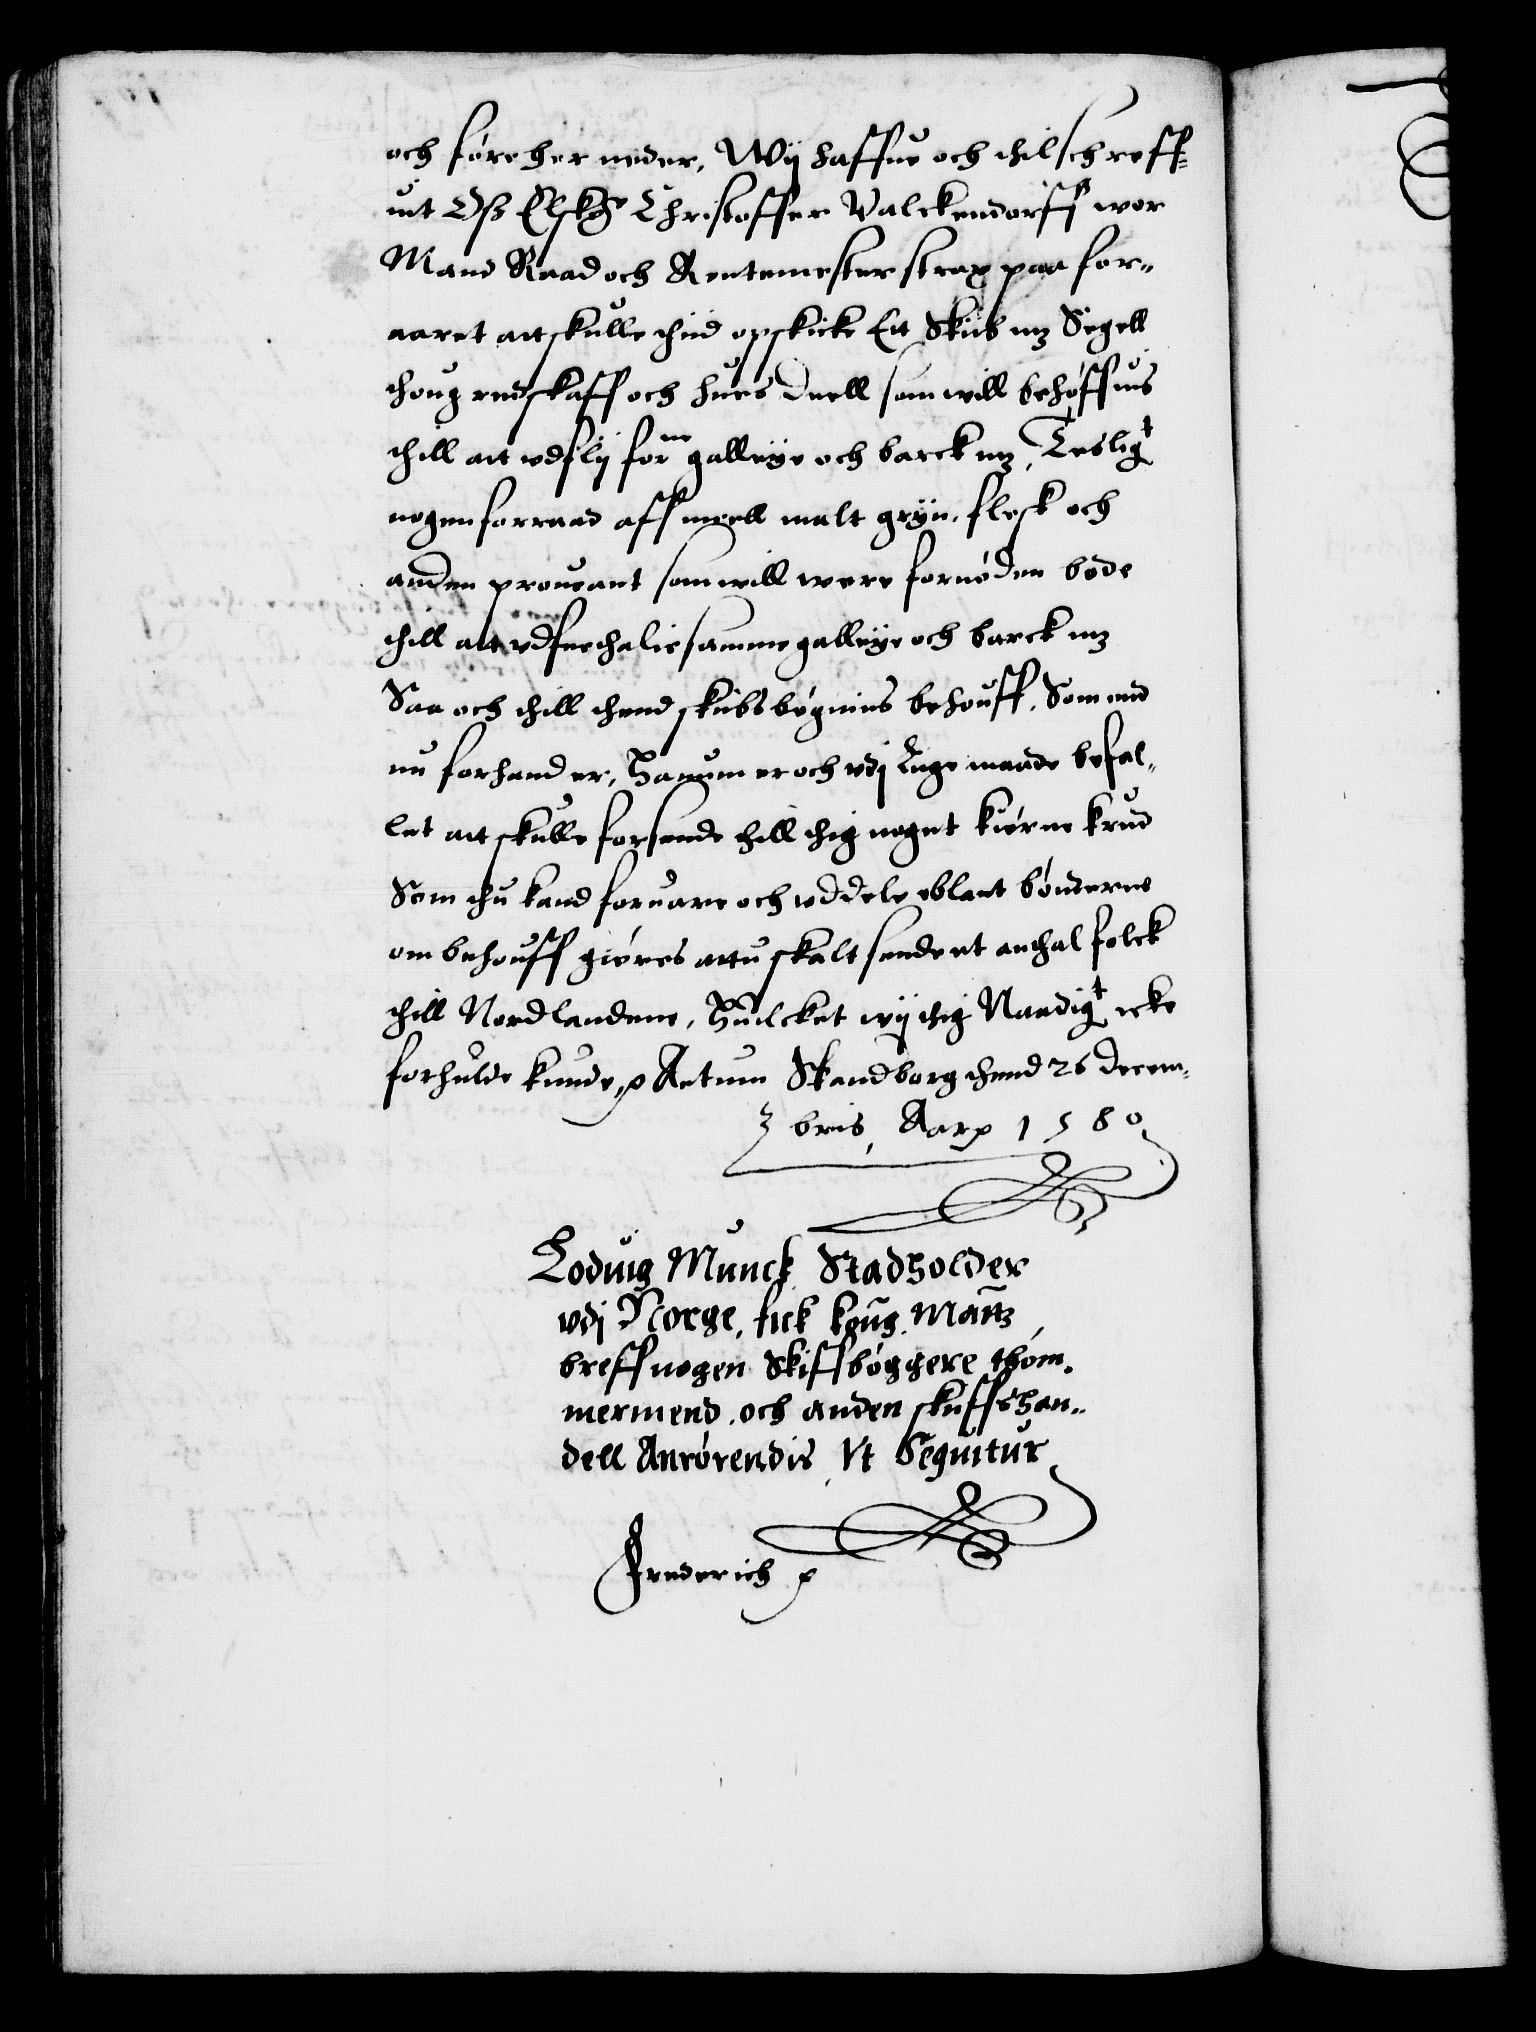 och føre her neder, Wij haffue och thilschreff=
uit Oß Elskg Christoffer Valckendorff wor
Mand Raad och Rentemester strax paa for„
aaret att skulle thid opskicke Ett Skiib mz Segell
thoug redskaff och hues deell som will behøffuis
thill att vdflij forne galleye och barck mz, Teslig^t
nogen forraad aff meell malt gryn, flesk och
anden prouant som will were fornøden bode
thill att vdfrethalie samme galleye och barck mz
Saa och thill thend skibsbygnins behouff, Som end
nu forhand er, Hanum er och vdj Lige maade befal„
let att skulle forsende thill thig noget kiørne krud
Som thu kand foruare och vddele eblant bønderne
om behouff giøres attu skalt sende et anthal folck
thill Nordlandene, Huilcket wij thig Naadig^t icke
forhulde kunde, Actum Skandborg thend 26 decem„
bris, Aar 1580
Lodvig Munck Stadholder
vdj Norge, fick Kong. Matz
breff nogen Skiffbøggere thøm.
mermend. och anden skuffshan„
dell Anrørendis Vt Sequitur
Frederich